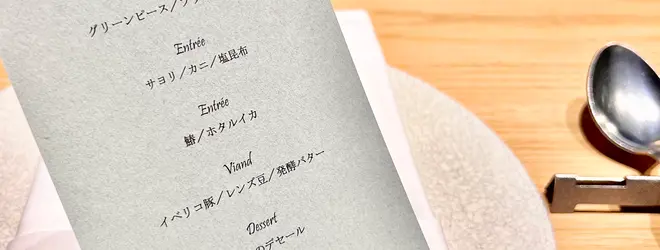 グリーンピース／
Entrée
サヨリ／カニ／塩昆布
Entrée
鰆／ホタルイカ
Viand
イベリコ豚／レンズ豆／発酵バター
Dessert
のデセール